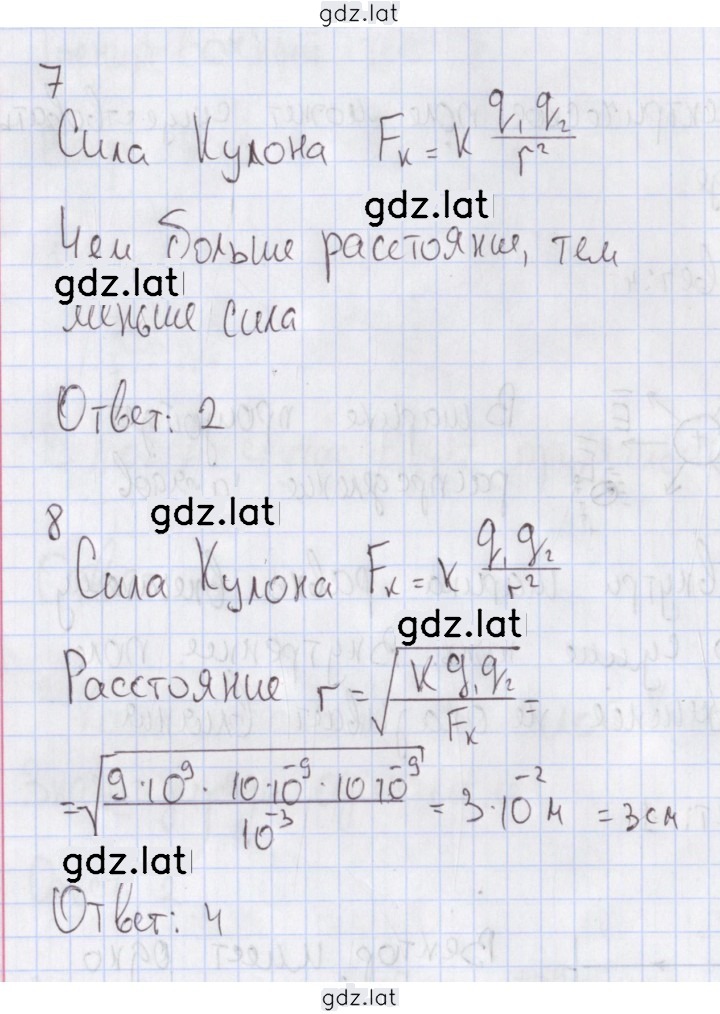 gdz.lat
7
Сила Кулона Fк = k q₁ q₂ / r²
gdz.lat
Чем больше расстояние, тем
gdz.lat
меньше сила
Ответ: 2
gdz.lat
8
Сила Кулона Fк = k q₁ q₂ / r²
gdz.lat
Расстояние r = √(k q₁ q₂ / Fк) =
= √(9·10⁹ · 10·10⁻⁹ · 10·10⁻⁹ / 10⁻³) = 3·10⁻² м = 3 см
gdz.lat
Ответ: 4
gdz.lat